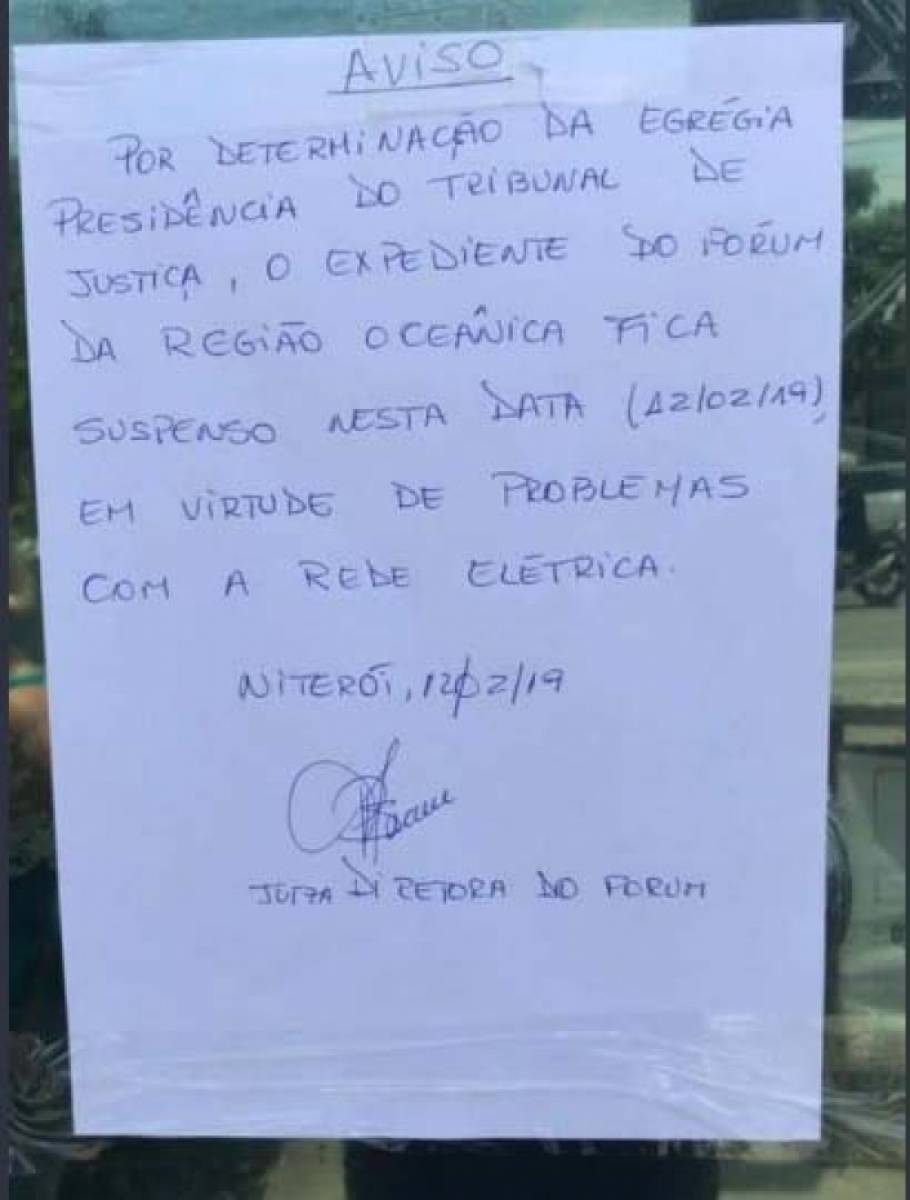 AVISO
POR DETERMINAÇÃO DA EGRÉGIA
PRESIDÊNCIA DO TRIBUNAL DE
JUSTIÇA, O EXPEDIENTE DO FORÚM
DA REGIÃO OCEÂNICA FICA
SUSPENSO NESTA DATA (12/02/19),
EM VIRTUDE DE PROBLEMAS
COM A REDE ELÉTRICA.
NITERÓI, 12/02/19
JUÍZA DIRETORA DO FORUM